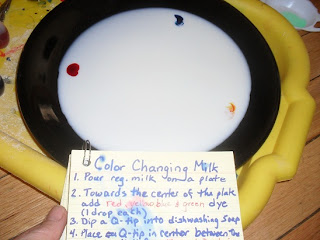 Color Changing Milk
1. Pour reg. milk on a plate
2. Towards the center of the plate
add red, yellow, blue & green dye
(1 drop each)
3. Dip a Q-tip into dishwashing soap
4. Place Q-tip in center between the